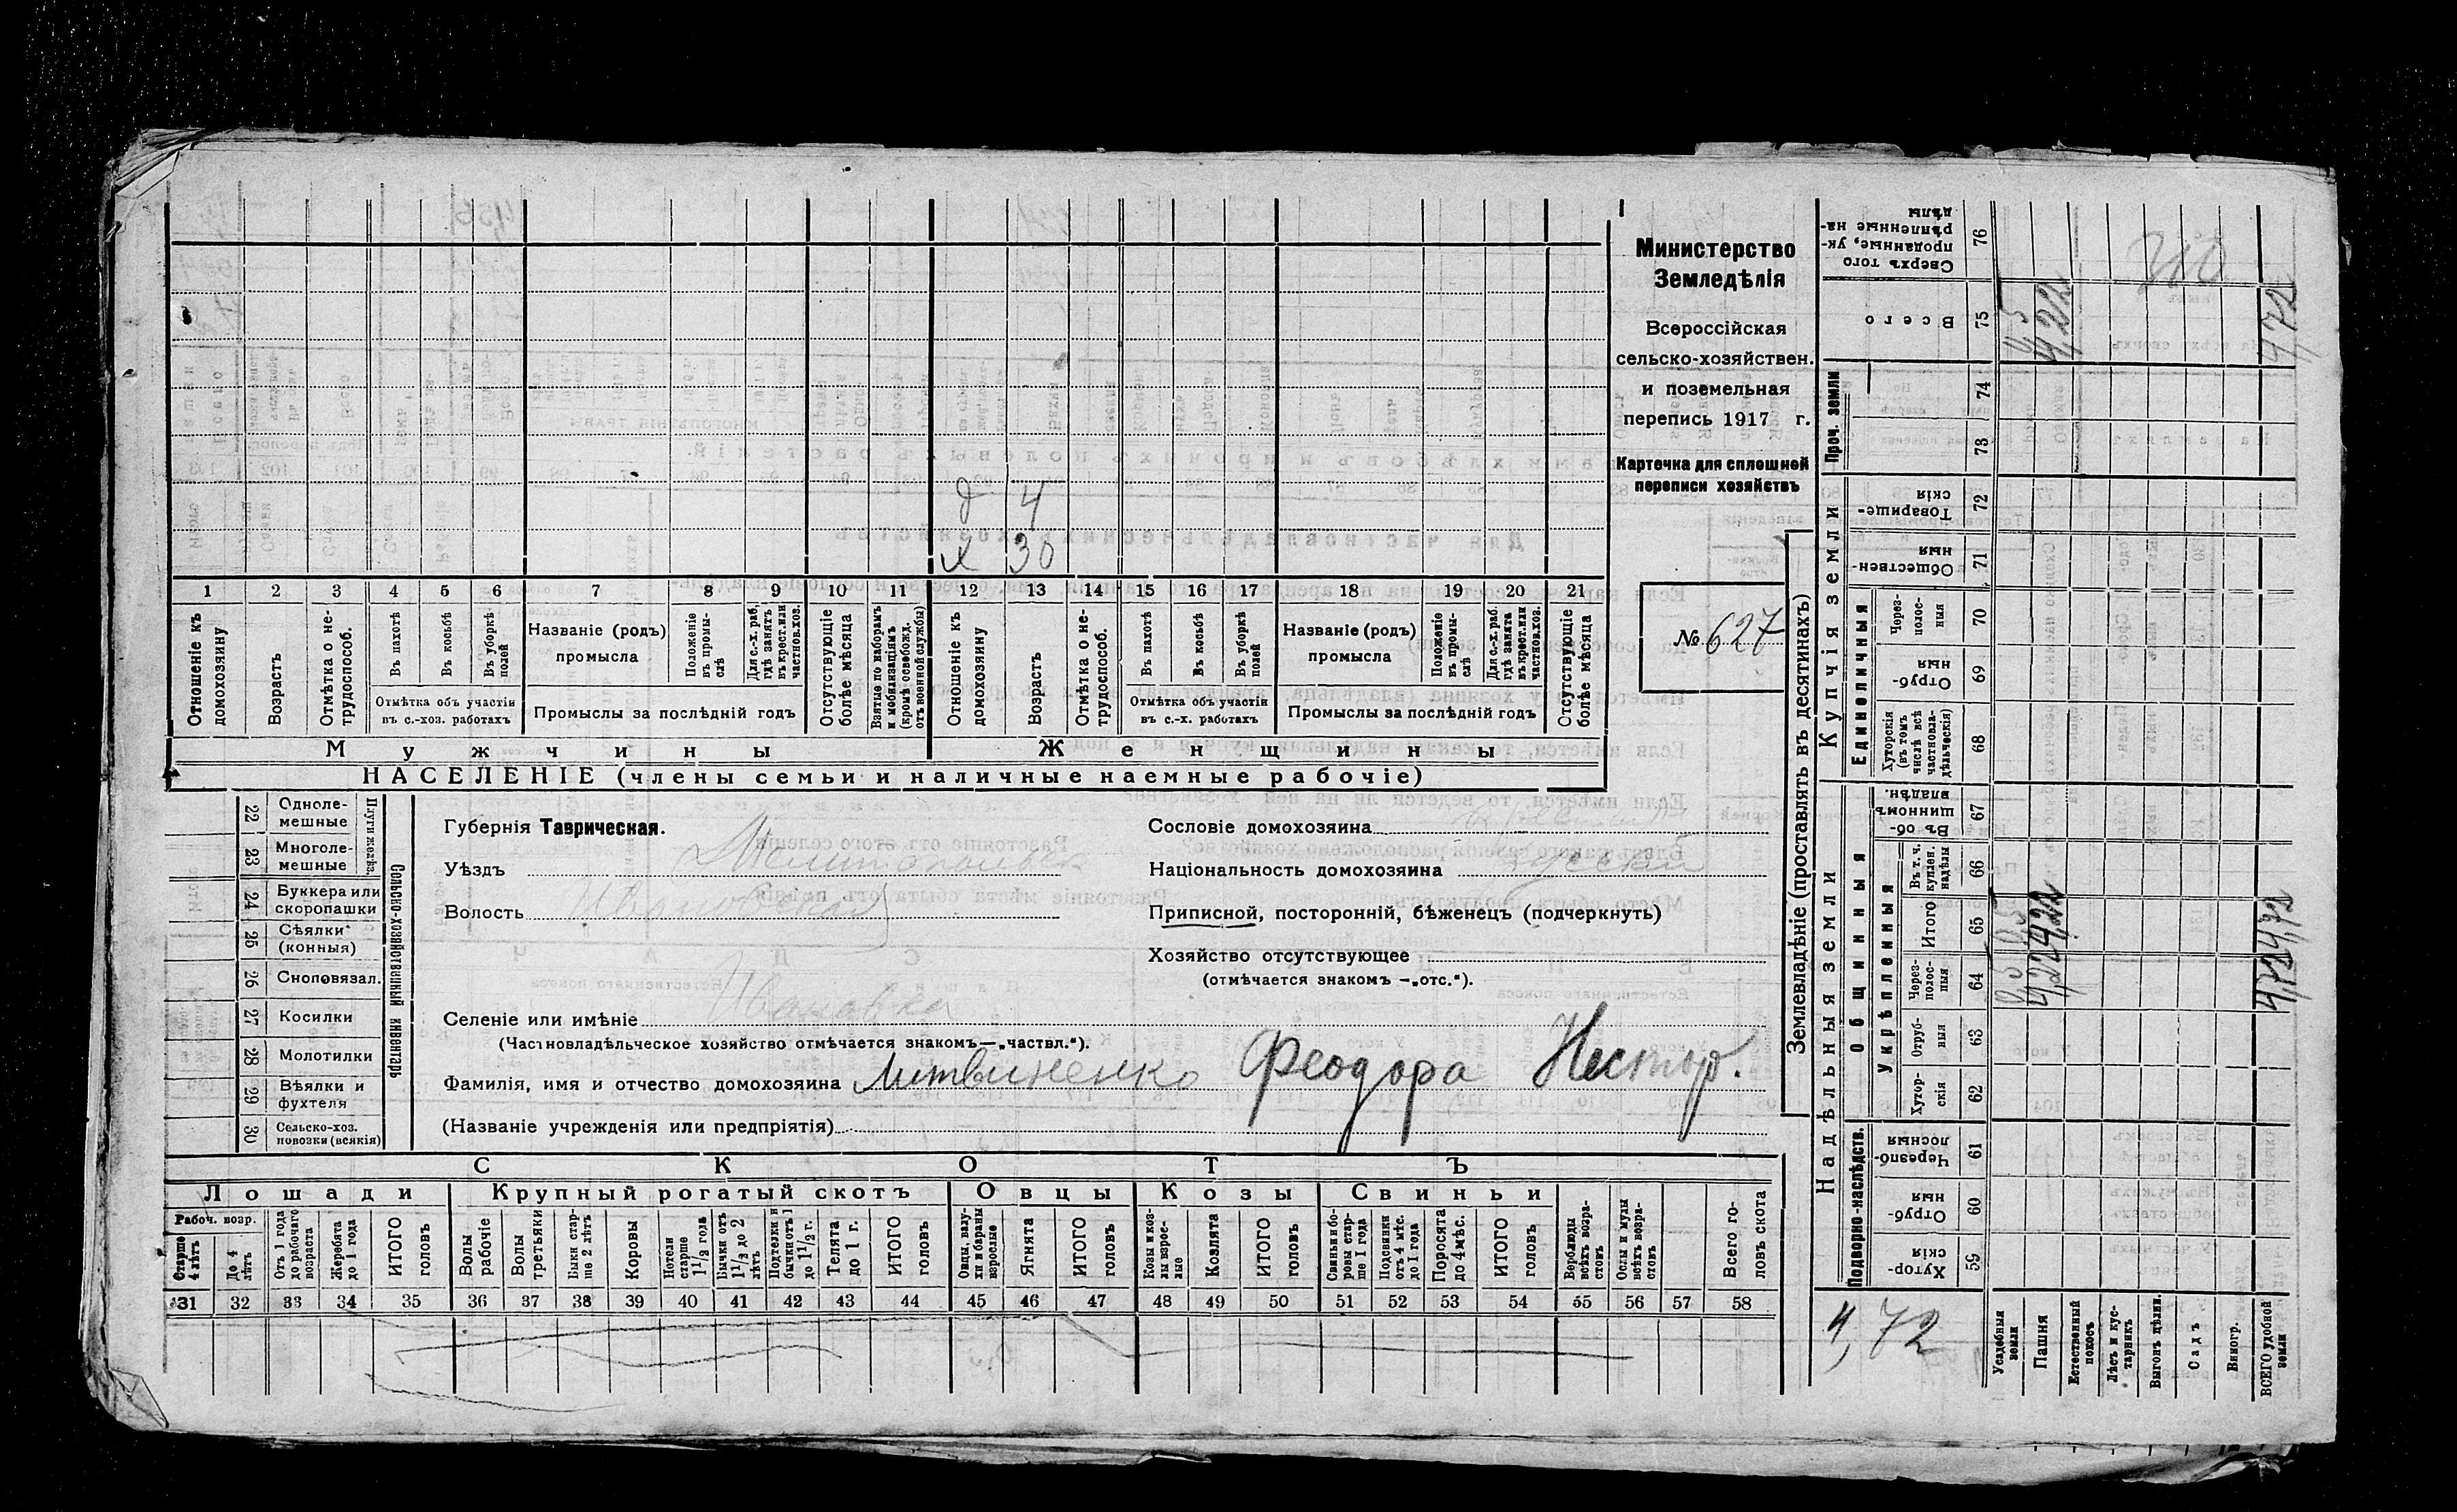 д 4
х 30
1 2 3 4 5 6 7 8 9 10 11 12 13 14 15 16 17 18 19 20 21
Отношеніе къ домохозяину
Возрастъ
Отмѣтка о нетрудоспособ.
Въ пахотѣ
Въ косьбѣ
Въ уборкѣ полей
Отмѣтка объ участіи
въ с.-хоз. работахъ
Названіе (родъ)
промысла
Положеніе въ промыслѣ
Для с.-х. раб. гдѣ занятъ въ крест. или частнов. хоз.
Промыслы за послѣдній годъ
Отсутствующіе болѣе мѣсяца
Взятые по наборамъ и мобилизаціямъ (кромѣ освобожд. отъ военной службы)
Отношеніе къ домохозяину
Возрастъ
Отмѣтка о нетрудоспособ.
Въ пахотѣ
Въ косьбѣ
Въ уборкѣ полей
Отмѣтка объ участіи
въ с.-х. работахъ
Названіе (родъ)
промысла
Положеніе въ промыслѣ
Для с.-х. раб. гдѣ занята въ крест. или частнов. хоз.
Промыслы за послѣдній годъ
Отсутствующіе болѣе мѣсяца
Мужчины Женщины
НАСЕЛЕНІЕ (члены семьи и наличные наемные рабочіе)
Министерство
Земледѣлія
Всероссійская
сельско-хозяйствен.
и поземельная
перепись 1917 г.
Карточка для сплошной
переписи хозяйствъ
№ 627
22 Однолемешные
23 Многолемешные
Плуги желѣз.
24 Буккера или скоропашки
25 Сѣялки (конныя)
26 Сноповязал.
27 Косилки
28 Молотилки
29 Вѣялки и фухтеля
30 Сельско-хоз. повозки (всякія)
Сельско-хозяйственный инвентарь
Губернія Таврическая.
Уѣздъ Мелитопольск
Волость Ивановская
Селеніе или имѣніе Ивановка
(Частновладѣльческое хозяйство отмѣчается знакомъ—„частвл.“).
Фамилія, имя и отчество домохозяина Литвиненко Феодора Нестор.
(Названіе учрежденія или предпріятія)
Сословіе домохозяина
Національность домохозяина русскій
Приписной, посторонній, бѣженецъ (подчеркнуть)
Хозяйство отсутствующее
(отмѣчается знакомъ —„отс.“).
СКОТЪ
Лошади Крупный рогатый скотъ Овцы Козы Свиньи
Рабоч. возр.
Старше 4 лѣтъ
До 4 лѣтъ
Отъ 1 года до рабочаго возраста
Жеребята до 1 года
ИТОГО головъ
Волы рабочіе
Волы третьяки
Быки старше 2 лѣтъ
Коровы
Нетели старше 1 1/2 года
Бычки отъ 1 1/2 до 2 лѣтъ
Подтелки и бычки отъ 1 до 1 1/2 г.
Телята до 1 г.
ИТОГО головъ
Овцы, валухи и бараны взрослые
Ягнята
ИТОГО головъ
Козы и козлы взрослые
Козлята
ИТОГО головъ
Свиньи и боровы старше 1 года
Подсвинки отъ 4 мѣс. до 1 года
Поросята до 4 мѣс.
ИТОГО головъ
Верблюды всѣхъ возрастовъ
Ослы и мулы всѣхъ возрастовъ
Всего головъ скота
31 32 33 34 35 36 37 38 39 40 41 42 43 44 45 46 47 48 49 50 51 52 53 54 55 56 57 58
Землевладѣніе (проставлять въ десятинахъ)
Надѣльныя земли
Купчія земли
Проч. земли
Подворно-наслѣдств.
Общинныя
Укрѣпленныя
Единоличныя
Хуторскія 59
Отрубныя 60
Черезполосныя 61
Хуторскія 62
Отрубныя 63
Черезполосныя 64
Итого 65
Въ т. ч. куплен. надѣлы 66
Въ общинномъ владѣн. 67
Хуторскія (въ томъ числѣ всѣ частновладѣльческія) 68
Отрубныя 69
Черезполосныя 70
Общественныя 71
Товарищескія 72
73
74
Всего 75
Сверхъ того проданные, укрѣпленные надѣлы 76
4,72
Усадебныя земли 0,5 0,5
Пашня 4,22 4,22 4,22
Естественный покосъ
Лѣсъ и кустарникъ
Выгонъ цѣлин.
Садъ
Виногр.
ВСЕГО удобной земли 4,72 4,72 4,72